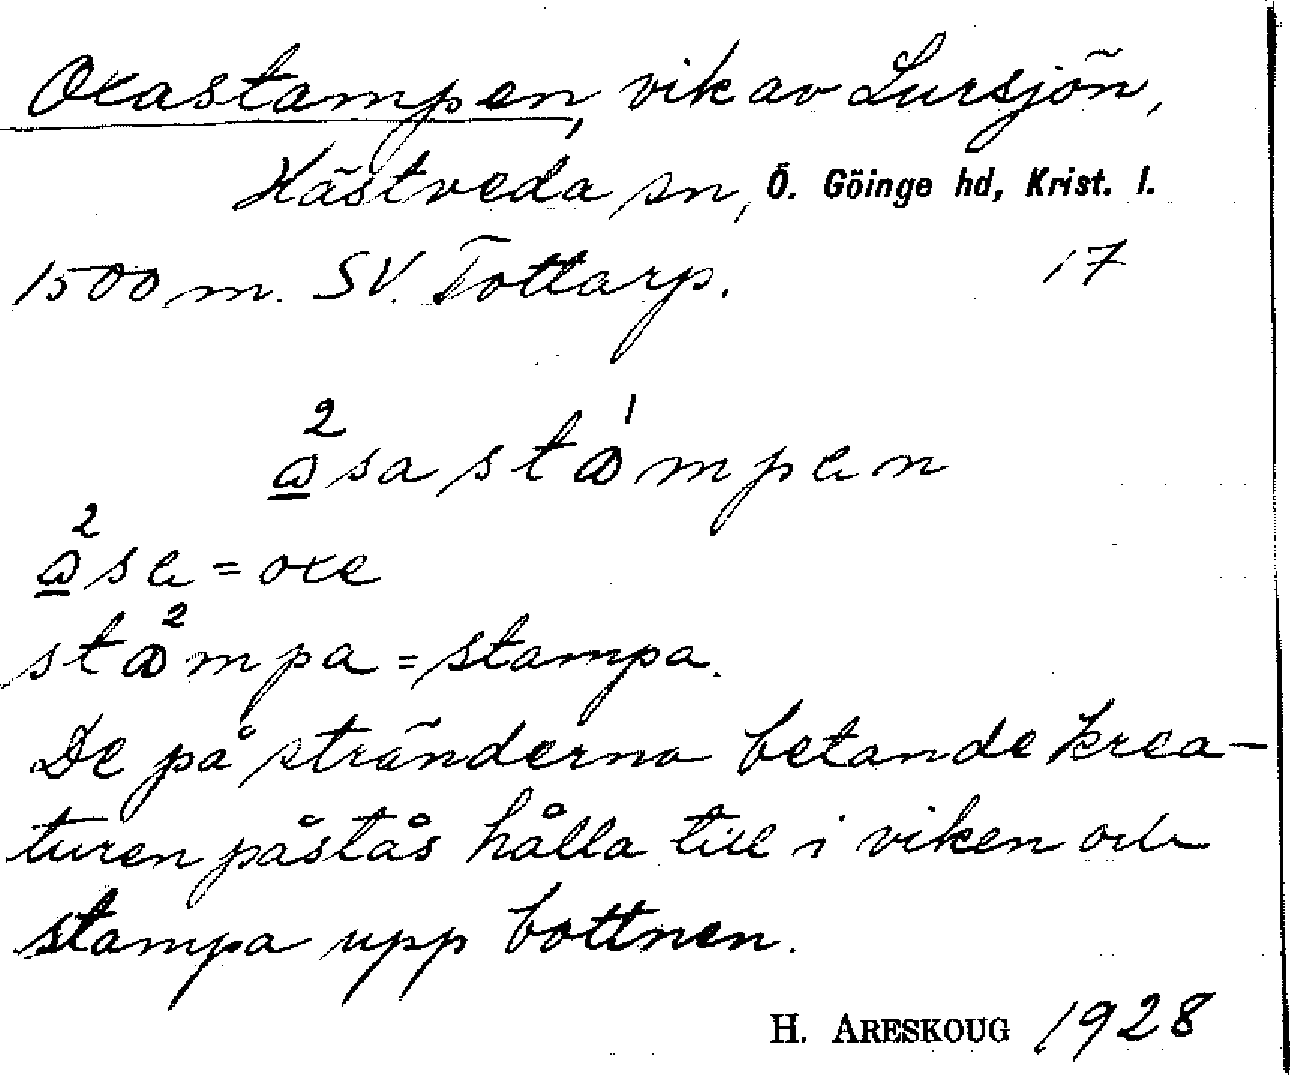 Oxastampen, vik av Lursjön,
Hästveda sn, Ö. Göinge hd, Krist. l.
1500 m. SV. Tottarp. 17
2 1
ɷsastɑmpen
2
ɷse = oxe
2
stɑmpa = stampa.
De på stränderna betande krea-
turen påstås hålla till i viken och
stampa upp bottnen.
H. ARESKOUG 1928